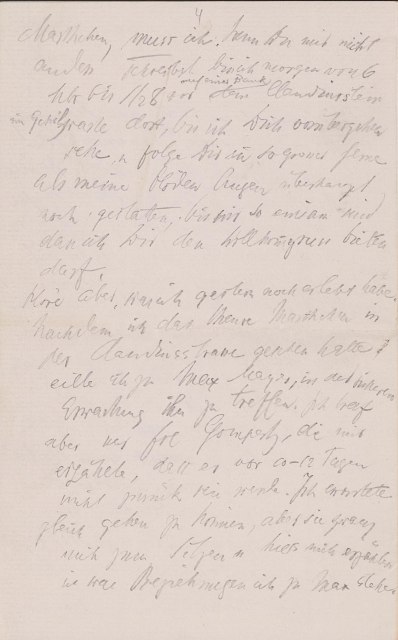 4
Marthchen, muss ich. Wenn Du mir nicht
anders schreibst bin ich morgen von 6
Uhr bis 1/2 8 vor dem
auf einer Bank
dort, bis ich Dich vorübergehen
sehe, u folge Dir in so grosser Ferne
als meine blöden Augen überhaupt
noch gestatten, bis es so einsam wird
dan ich Dir den Willkomgruss bieten
darf.
Höre aber, was ich gestern noch erlebt habe.
Nachdem ich das kleine Marthchen in
der gesehen hatte
eilte ich zu Max in der sicheren
Erwartung ihn zu treffen. Ich traf
aber nur Frl Gomperz, die mir
erzählte, dass er vor 10-12 Tagen
nicht zurück sein werde. Ich erwartete
gleich gehen zu können, aber sie zwang
mich zum Sitzen u hiess mich erzählen
in was Beziehungen ich zu Max stehe